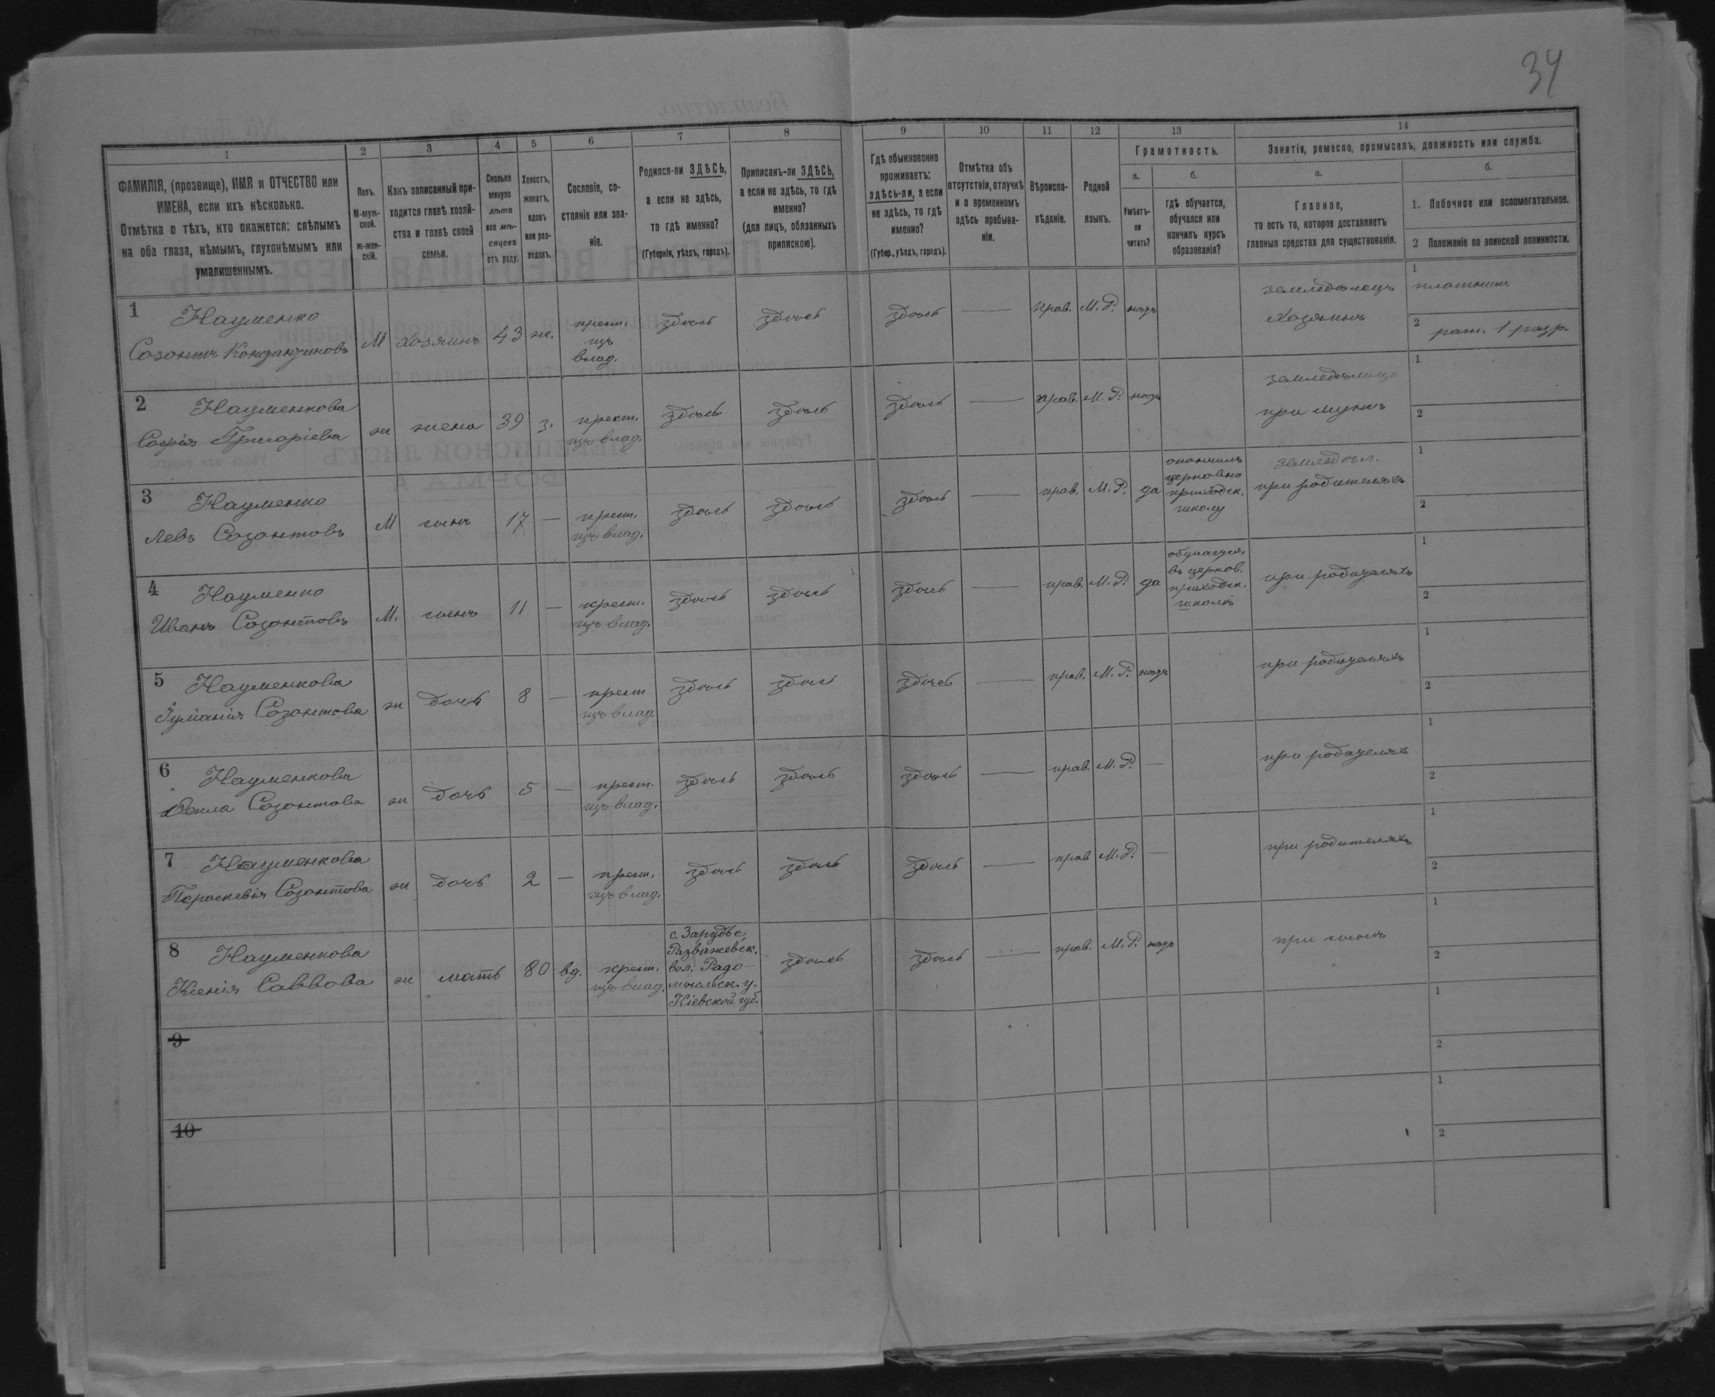 34
1
2
3
4
5
6
7
8
9
10
11
12
13
14
ФАМИЛІЯ, (прозвище), ИМЯ и ОТЧЕСТВО или
ИМЕНА, если ихъ нѣсколько.
Отмѣтка о тѣхъ, кто окажется: слѣпымъ
на оба глаза, нѣмымъ, глухонѣмымъ или
умалишеннымъ.
Полъ.
М-муж-
ской.
ж-жен-
скій.
Какъ записанный при-
ходится главѣ хозяй-
ства и главѣ своей
семьи.
Сколько
минуло
лѣтъ
или мѣ-
сяцевъ
отъ роду.
Холостъ,
женатъ,
вдовъ
или раз-
веденъ.
Сословіе, со-
стояніе или зва-
ніе.
Родился-ли ЗДѢСЬ,
а если не здѣсь,
то гдѣ именно?
(Губернія, уѣздъ, городъ).
Приписанъ-ли ЗДѢСЬ,
а если не здѣсь, то гдѣ
именно?
(для лицъ, обязанныхъ
припискою).
Гдѣ обыкновенно
проживаетъ:
здѣсь-ли, а если
не здѣсь, то гдѣ
именно?
(Губер., уѣздъ, городъ).
Отмѣтка объ
отсутствіи, отлучкѣ
и о временномъ
здѣсь пребыва-
ніи.
Вѣроиспо-
вѣданіе.
Родной
языкъ.
Грамотность.
а.
Умѣетъ-
ли
читать?
б.
гдѣ обучается,
обучался или
кончилъ курсъ
образованія?
Занятіе, ремесло, промыселъ, должность или служба.
а.
Главное,
то есть то, которое доставляетъ
главныя средства для существованія.
б.
1. Побочное или вспомогательное.
2 Положеніе по воинской повинности.
1 Науменко
Созонтъ Константиновъ
М хозяинъ 43 ж. крест.
изъ
влад.
здѣсь здѣсь здѣсь — прав. М.Р. нѣтъ
земледѣлецъ
хозяинъ
1 плотникъ
2 рат. 1 разр.
2 Науменкова
Софія Григоріева
ж жена 39 з. крест.
изъ влад.
здѣсь здѣсь здѣсь — прав. М.Р. нѣтъ
при мужѣ
1
2
3 Науменко
Левъ Созонтовъ
М сынъ 17 — крест.
изъ влад.
здѣсь здѣсь здѣсь — прав. М.Р. да
окончилъ
церковно
приходск.
школу
земледѣл.
при родителяхъ
1
2
4 Науменко
Иванъ Созонтовъ
М. сынъ 11 — крест.
изъ влад.
здѣсь здѣсь здѣсь — прав. М.Р. да
обучается
въ церков.
приходск.
школѣ
при родителяхъ
1
2
5 Науменкова
Іуліанія Созонтова
ж дочь 8 — крест
изъ влад.
здѣсь здѣсь здѣсь — прав. М.Р. нѣтъ
при родителяхъ
1
2
6 Науменкова
Ѳекла Созонтова
ж дочь 5 — крест.
изъ влад.
здѣсь здѣсь здѣсь — прав. М.Р. —
при родителяхъ
1
2
7 Науменкова
Параскевія Созонтова
ж дочь 2 — крест.
изъ влад.
здѣсь здѣсь здѣсь — прав М.Р. —
при родителяхъ
1
2
8 Науменкова
Ксенія Саввова
ж мать 80 вд. крест.
изъ влад.
с. Зарудье,
Разважевск.
вол. Радо-
мысльск. у.
Кіевской губ.
здѣсь здѣсь — прав. М.Р. нѣтъ
при сынѣ
1
2
9
1
2
10
1
2